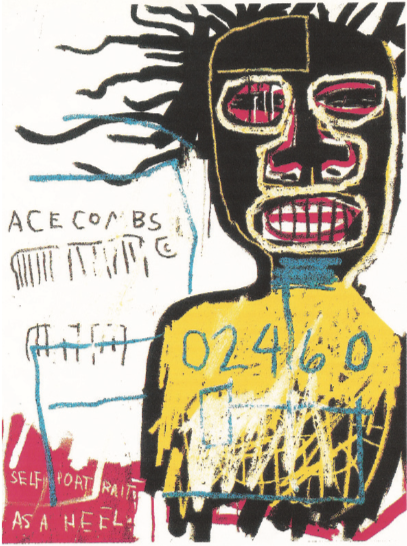 ACE COMBS
©
02460
SELF PORTRAIT
AS A HEEL